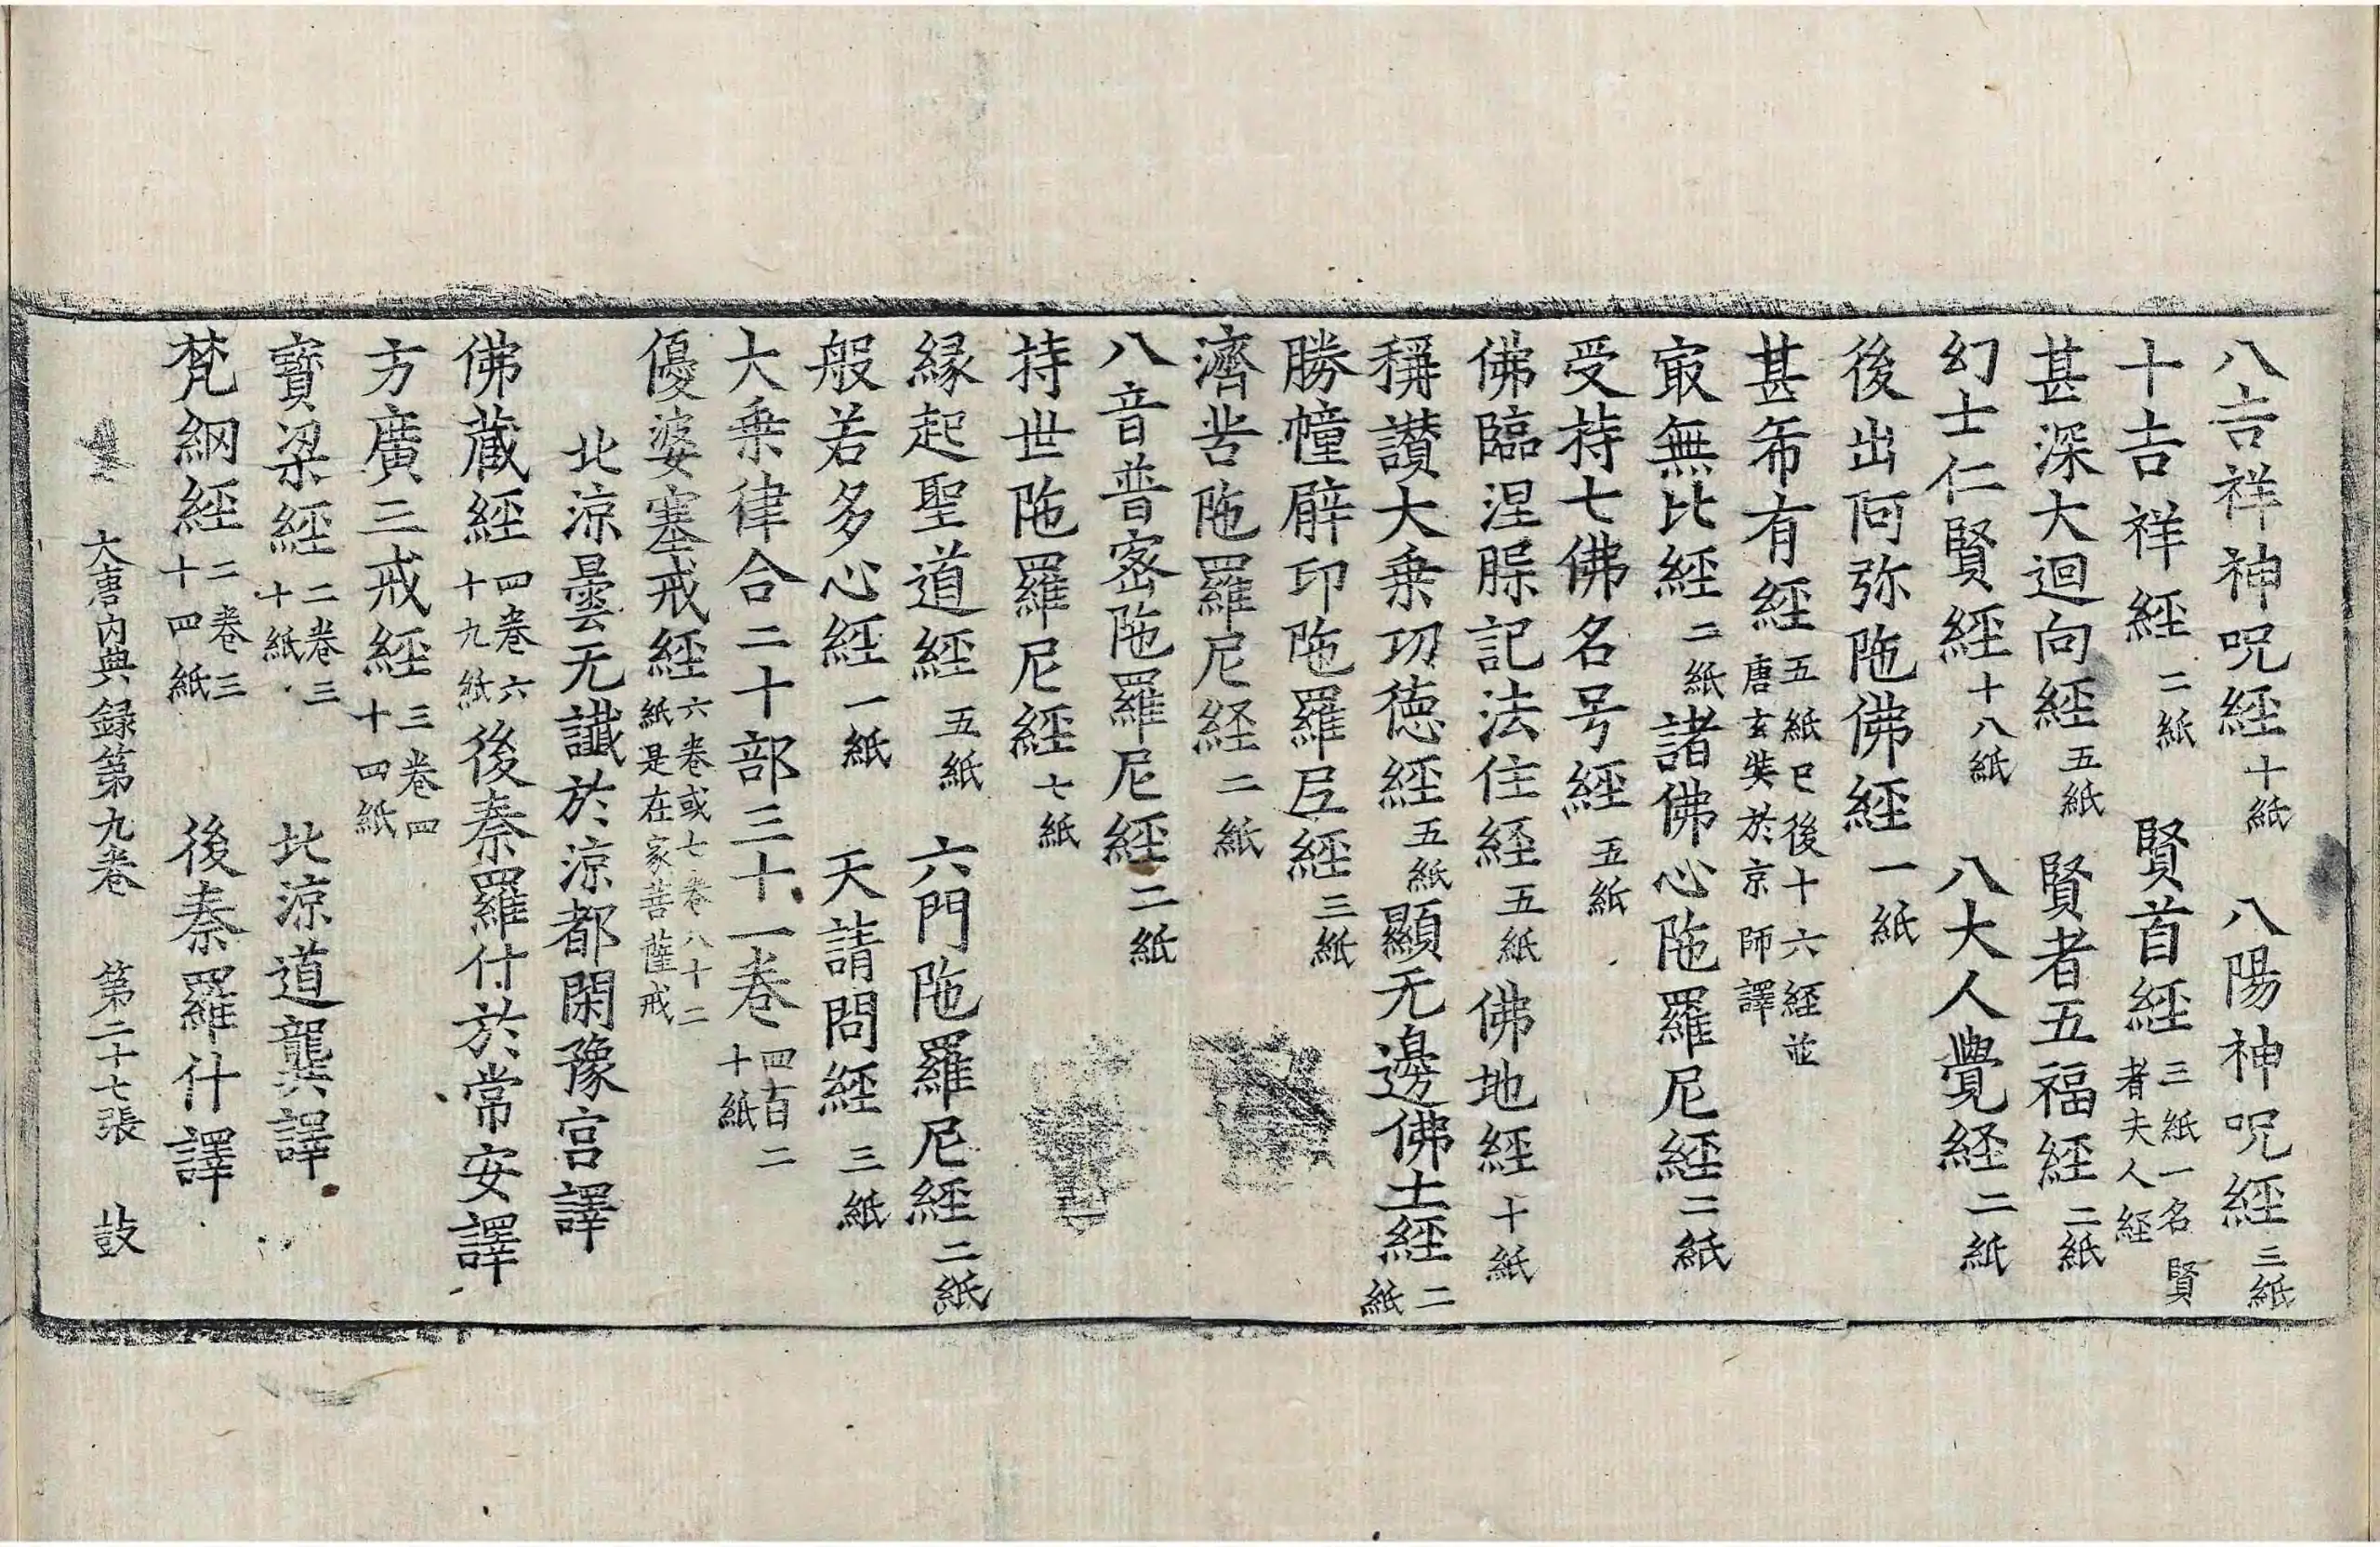 八吉祥神呪經十紙 八陽神呪經三紙
十吉祥經二紙 賢首經三紙一名賢者夫人經
甚深大迴向經五紙 賢者五福經二紙
幻士仁賢經十八紙 八大人覺經二紙
後出阿弥陁佛經一紙
甚希有經五紙已後十六經並唐玄奘於京師譯
㝡無比經二紙諸佛心陁羅尼經三紙
受持七佛名号經五紙
佛臨涅脲記法住經五紙佛地經十紙
稱讃大乗功徳經五紙顯无邊佛土經二紙
勝幢臂印陁羅尼經三紙
濟苦陁羅尼経二紙
八音普宻陁羅尼經二紙
持世陁羅尼經七紙
縁起聖道經五紙 六門陁羅尼經二紙
般若多心經一紙 天請問經三紙
大乗律合二十部三十一卷四百二十紙
優婆塞戒經六卷或七卷八十二紙是在家菩薩戒
北涼曇无讖於涼都閑豫宫譯
佛蔵經四卷六十九紙後秦羅什於常安譯
方廣三戒經三卷四十四紙
寳梁經二卷三十紙 北涼道龔譯
梵綱經二卷三十四紙 後秦羅什譯
大唐内典録第九卷 第二十七張 鼓